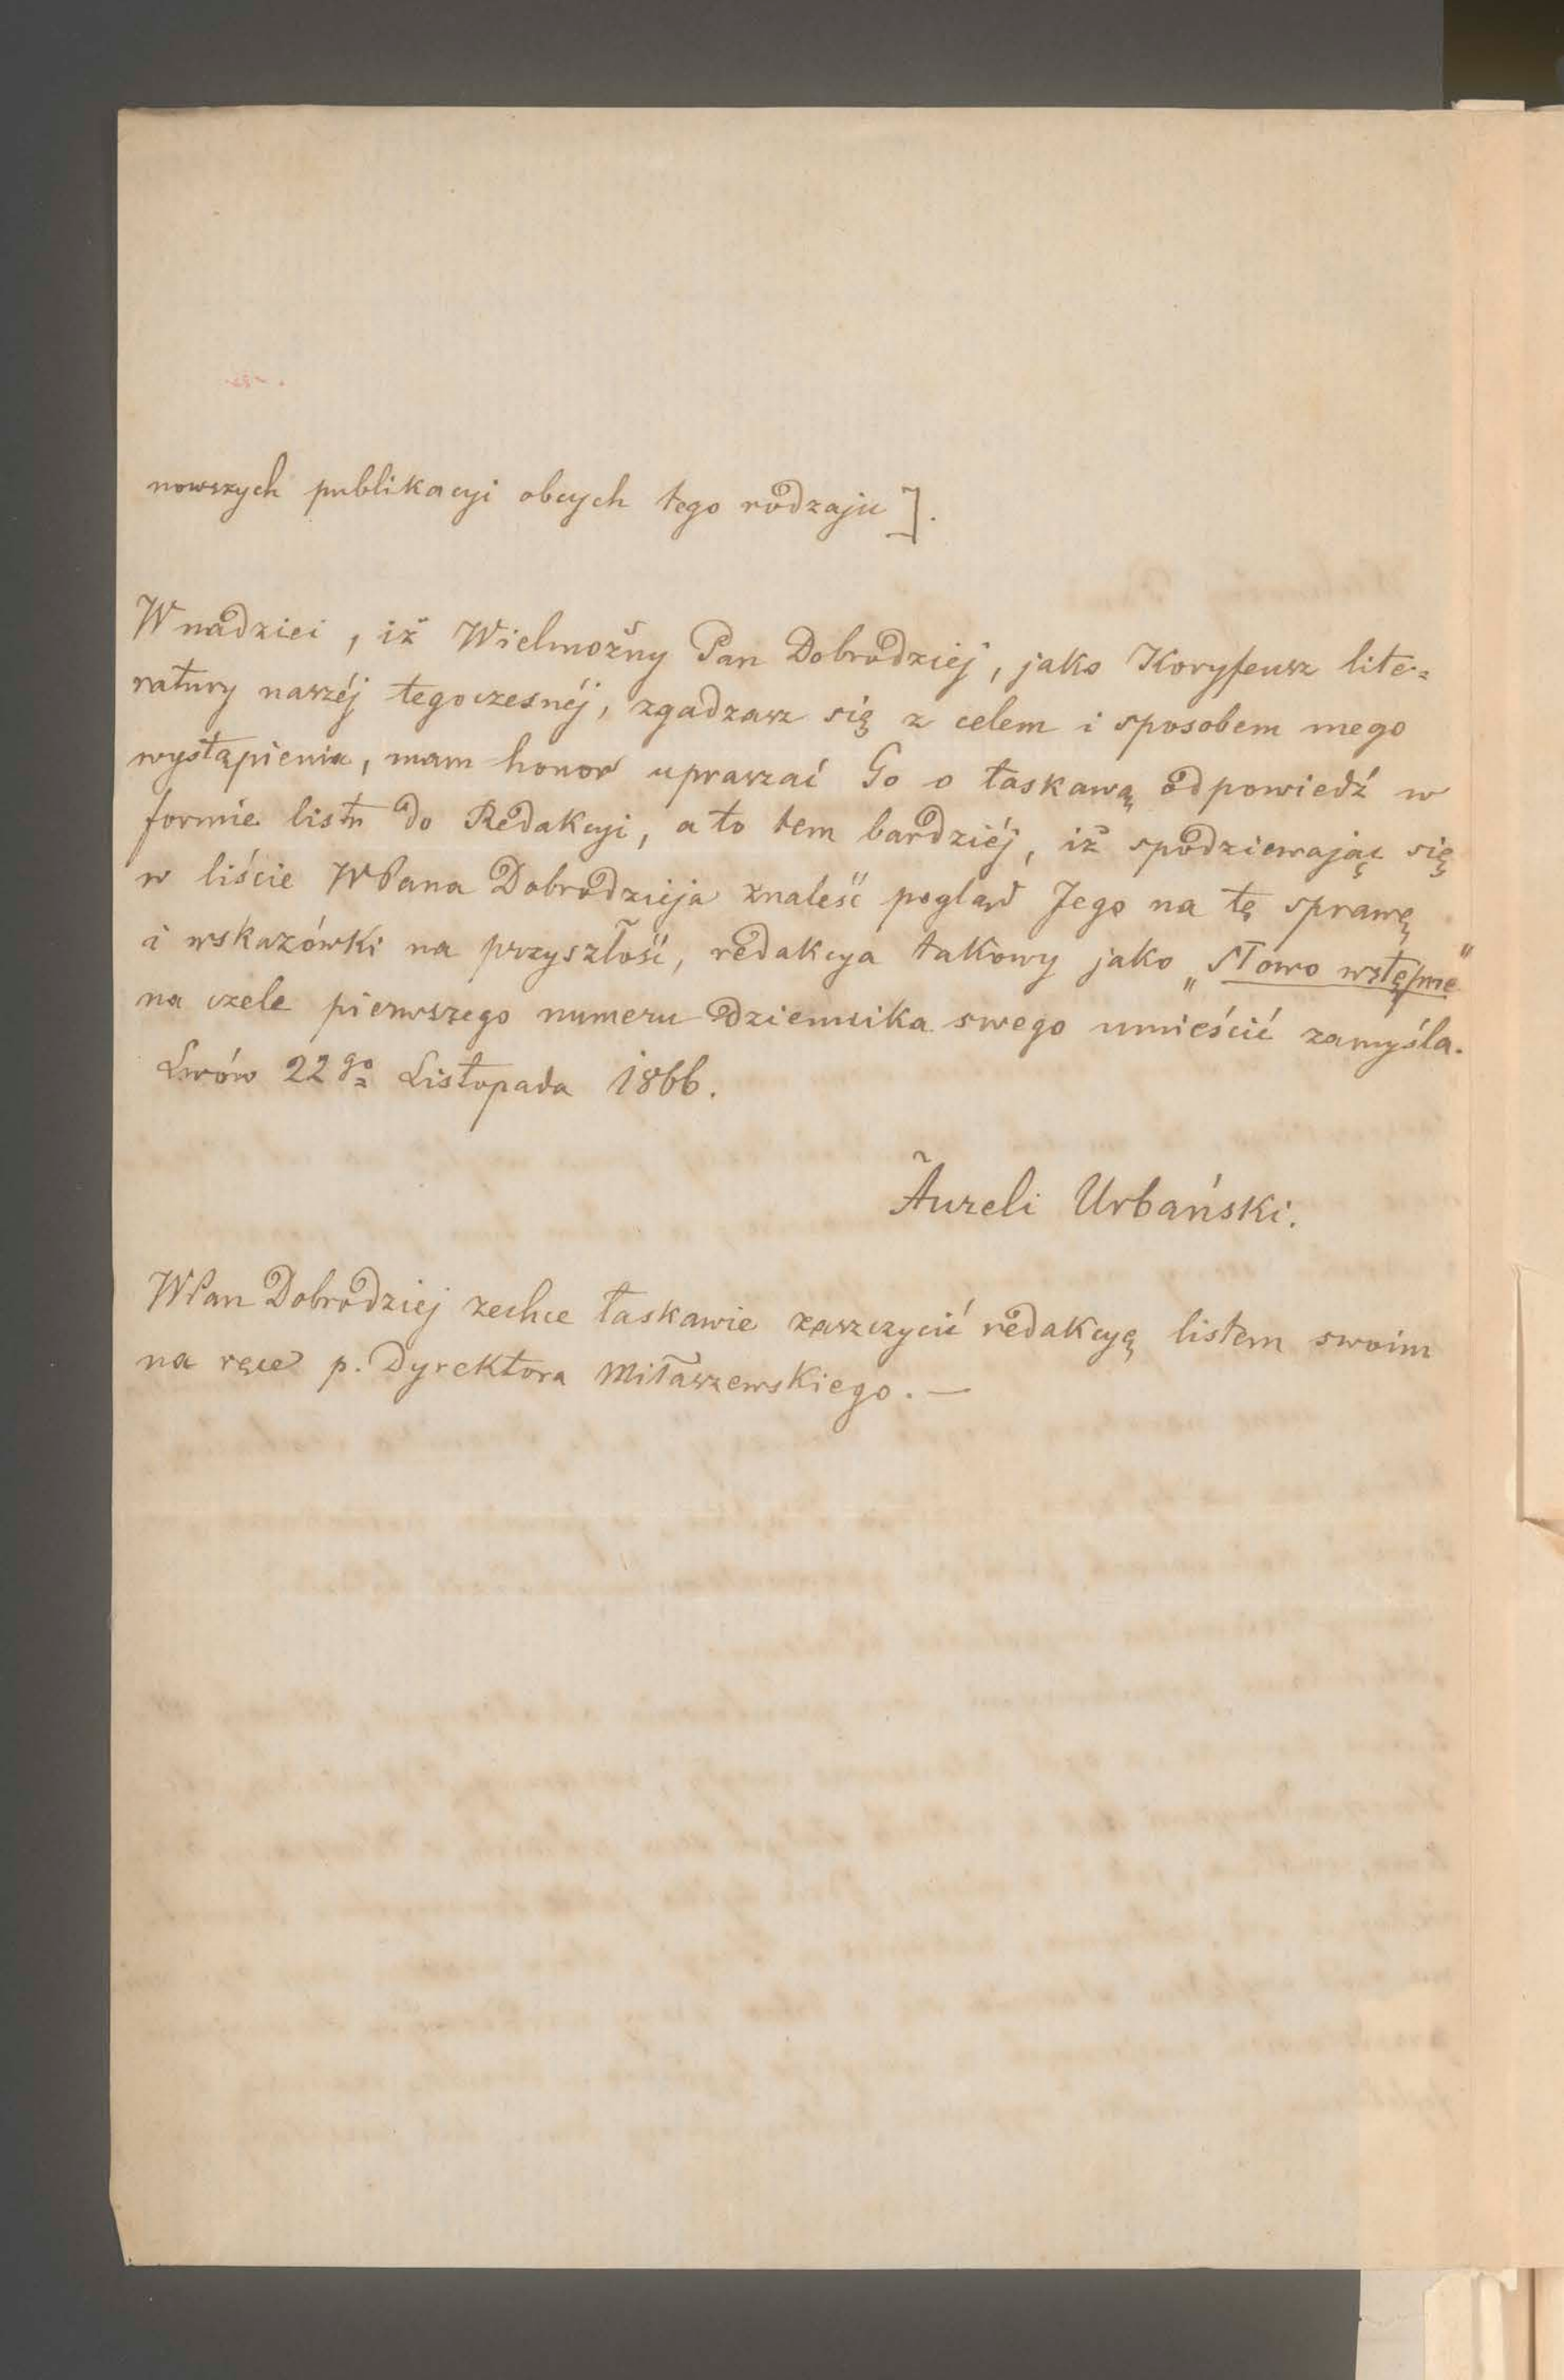 nowszych publikacyi obcych tego rodzaju].
W nadziei, iż Wielmożny Pan Dobrodziéj, jako Koryfeusz lite=
ratury naszéj tegoczesnéj, zgadzasz się z celem i sposobem mego
wystąpienia, mam honor upraszać Go o łaskawą odpowiedź w
formie listu do Redakcyi, a to tem bardziéj, iż spodziewając się
w liście WPana Dobrodzieja znaleść pogląd Jego na tę sprawę
i wskazówki na przyszłość, redakcya takowy jako „Słowo wstępne"
na czele pierwszego numeru dziennika swego umieścić zamyśla.
Lwów 22go Listopada 1866.
Aureli Urbański.
WPan Dobrodziej zechce łaskawie zaszczycić redakcyę listem swoim
na ręce p. Dyrektora Miłaszewskiego. —